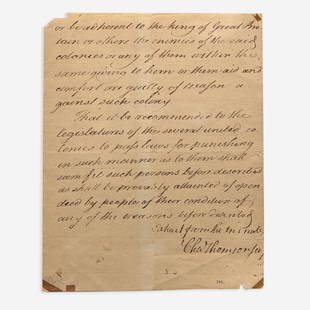 or be adherent to the king of Great Bri
tain or others the enemies of the said
colonies or any of them within the
same giving to him or them aid and
comfort are guilty of treason a
gainst such colony
That it be recommended to the
legislatures of the several united co
lonies to pass laws for punishing
in such manner as to them shall
seem fit such persons before described
as shall be proveably attainted of open
deed by people of their condition of
any of the treasons before described
Extract from the minutes
Cha Thomson secy